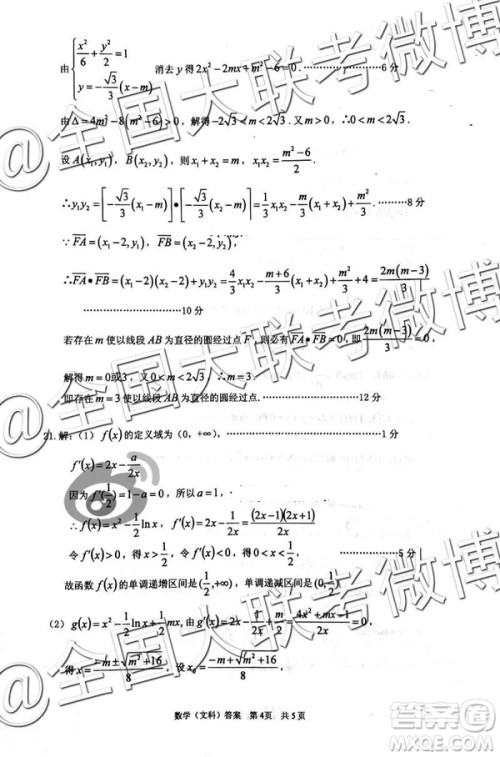 由 { x²/6 + y²/2 = 1
y = -√3/3 (x-m) 消去 y 得 2x² - 2mx + m² - 6 = 0. ……………6 分
由 Δ = 4m² - 8(m² - 6) > 0，解得 -2√3 < m < 2√3 . 又 m > 0，∴ 0 < m < 2√3 .
设 A(x₁, y₁)，B(x₂, y₂)，则 x₁ + x₂ = m，x₁x₂ = (m²-6)/2 .
∴ y₁y₂ = [-√3/3 (x₁-m)]•[-√3/3 (x₂-m)] = 1/3 x₁x₂ - m/3 (x₁+x₂) + m²/3 . ………8 分
∵ FA = (x₁-2, y₁)，FB = (x₂-2, y₂)，
∴ FA•FB = (x₁-2)(x₂-2) + y₁y₂ = 4/3 x₁x₂ - (m+6)/3 (x₁+x₂) + m²/3 + 4 = 2m(m-3)/3
……………10 分
若存在 m 使以线段 AB 为直径的圆经过点 F，则必有 FA•FB = 0，即 2m(m-3)/3 = 0，
解得 m = 0或3，又 0 < m < 2√3，∴ m = 3 .
即存在 m 使以线段 AB 为直径的圆经过点 ……………12 分
21.解：（1） f(x) 的定义域为（0，+∞），……………1 分
f'(x) = 2x - a/2x
因为 f'(1/2) = 1 - a = 0，所以 a = 1，
∴ f(x) = x² - 1/2 ln x，f'(x) = 2x - 1/2x = (2x-1)(2x+1)/2x
令 f'(x) > 0，得 x > 1/2，令 f'(x) < 0，得 0 < x < 1/2， ……………5 分
故函数 f(x) 的单调递增区间是 (1/2, +∞)，单调递减区间是 (0, 1/2)
（2） g(x) = x² - 1/2 ln x + 1/2 mx，由 g'(x) = 2x - 1/2x + m/2 = (4x²+mx-1)/2x = 0，
得 x = (-m±√(m²+16))/8，设 x₀ = (-m+√(m²+16))/8，
数学（文科）答案 第 4页 共 5 页
@全国大联考微博
@全国大联考微博
@全国大联考微博
作业帮